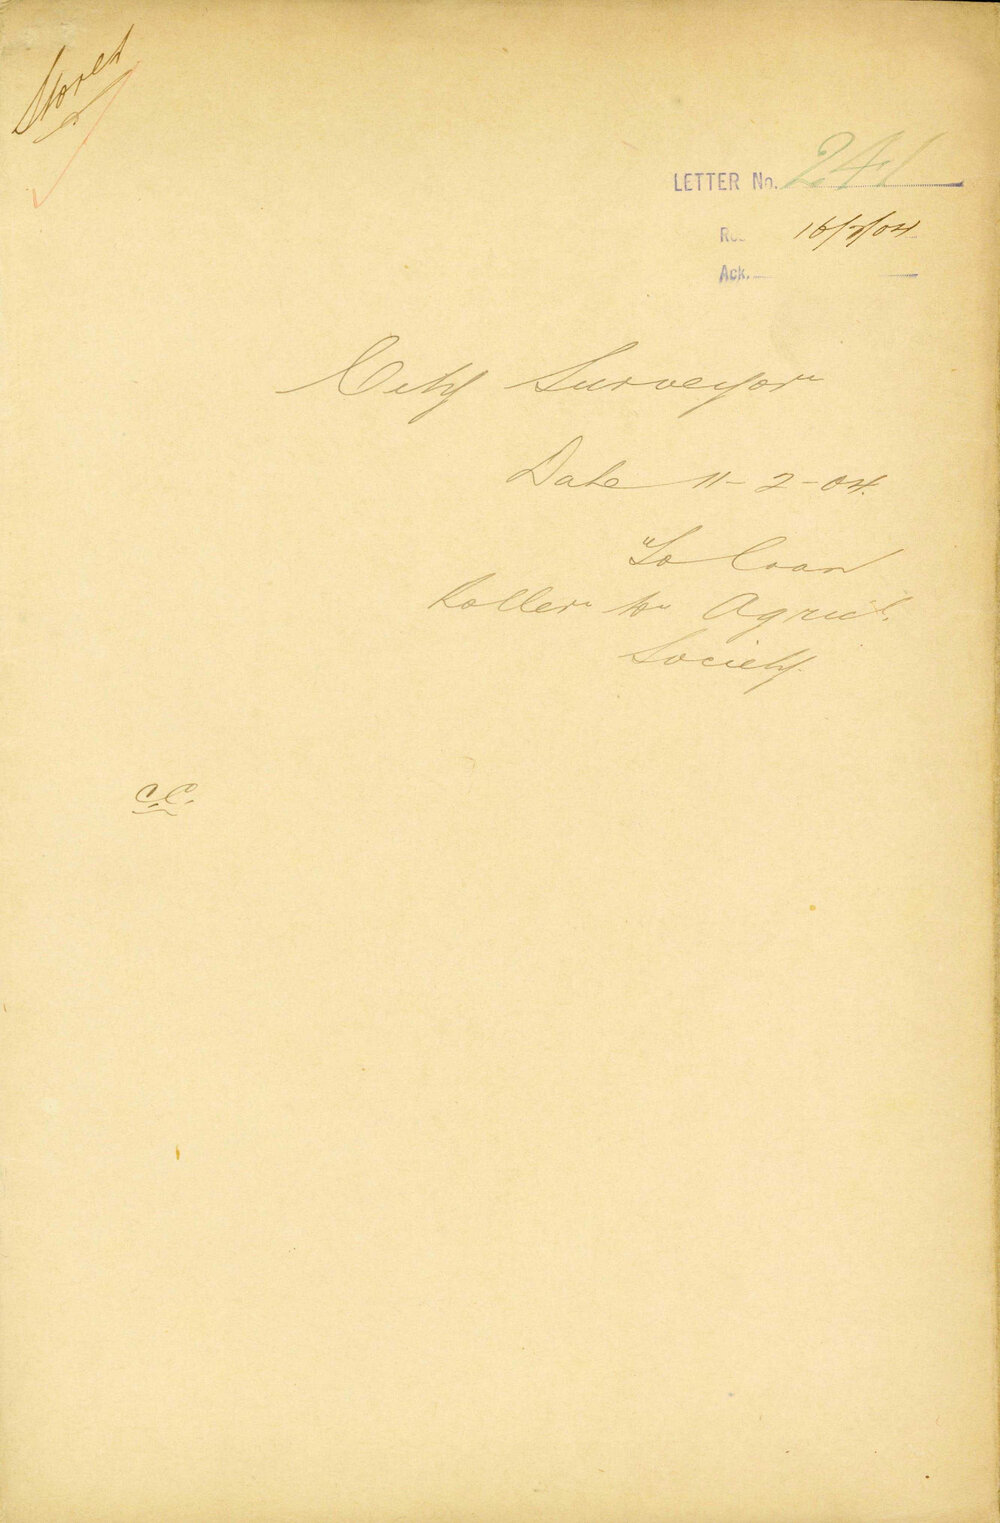 Stores
LETTER No. 241
Rec 16/2/04
Ack.
City Surveyor
Date 11-2-04.
"To loan
Roller to Agricl.
Society.
C.C.